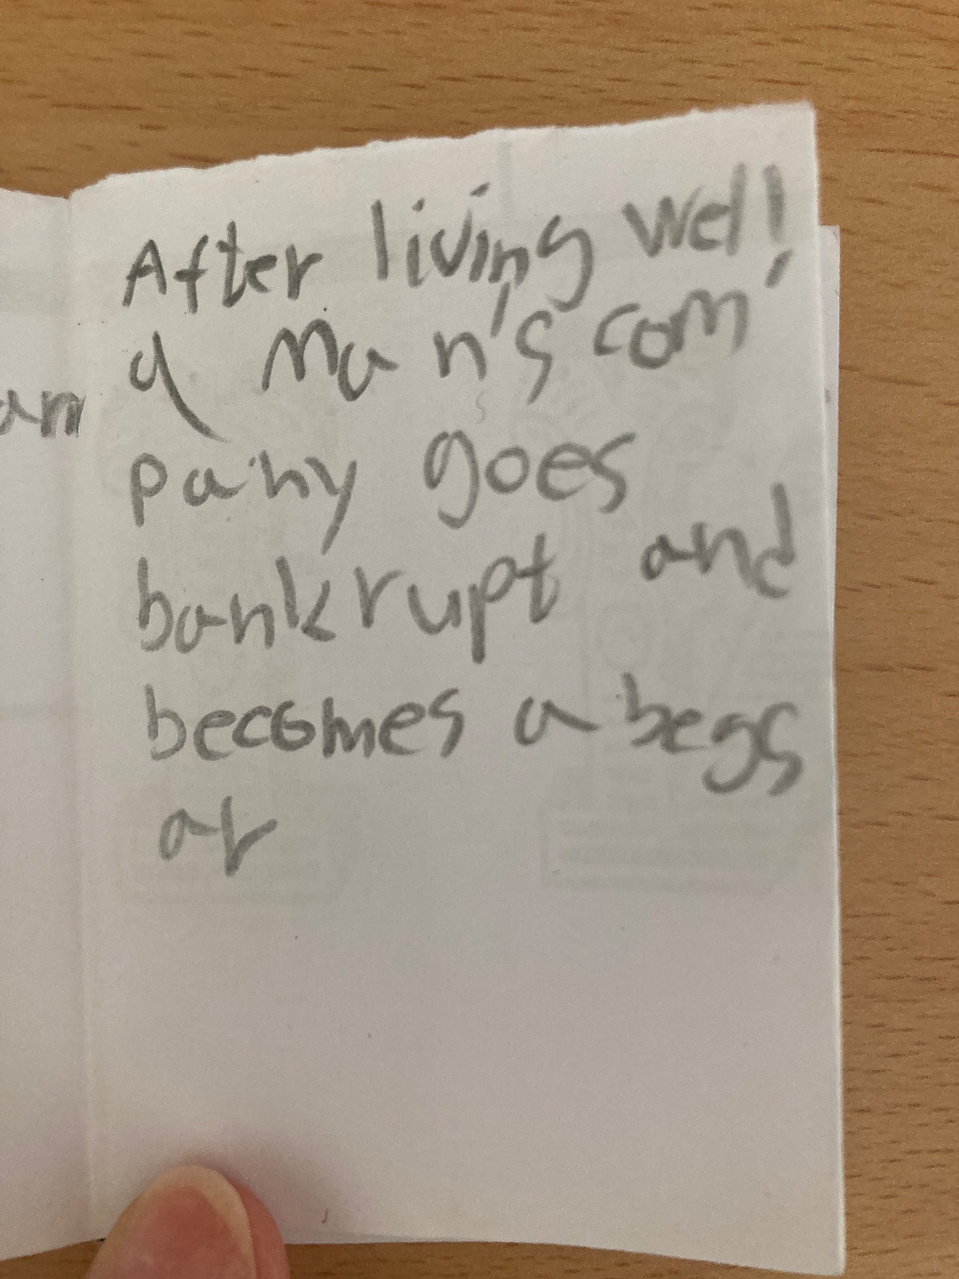 After living well,
a man's com
an
pany goes
bankrupt and
becomes a begg
ar